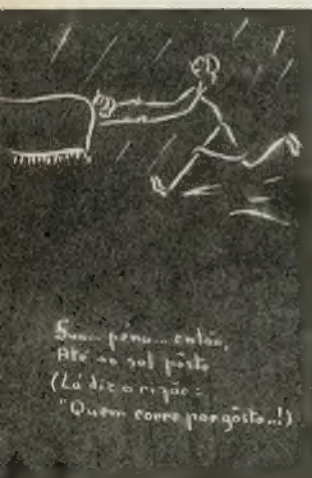 Sua... pena... então,
Até ao sol pôsto
(Lá diz o rifão:
"Quem corre por gôsto...!)